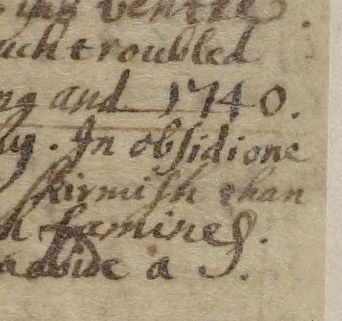 ying ventre.
uch troubled
ng and 1740.
uy. In obsidione
skirmish than
h famines.
abide a S.